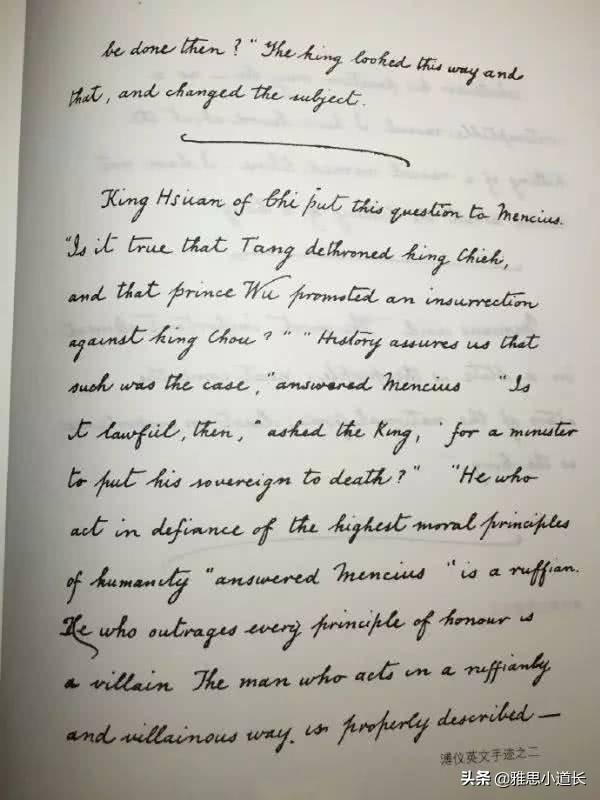 be done then?" The king looked this way and
that, and changed the subject.
King Hsüan of Chi put this question to Mencius.
"Is it true that Tang dethroned king Chieh,
and that prince Wu promoted an insurrection
against king Chou?" "History assures us that
such was the case," answered Mencius "Is
it lawful, then," asked the King, "for a minister
to put his sovereign to death?" "He who
act in defiance of the highest moral principles
of humanity" answered Mencius "is a ruffian.
He who outrages every principle of honour is
a villain The man who acts in a ruffianly
and villainous way. is properly described —
溥仪英文手迹之二
头条 @雅思小道长